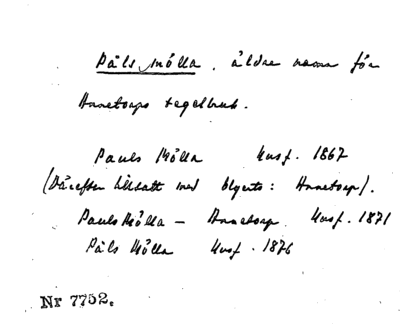 Påls mölla, äldre namn för
Annetorps tegelbruk.
Pauls Mölla Husf. 1867
(Därefter tillsatt med blyerts: Annetorp).
Pauls Mölla - Annetorp Husf. 1871
Påls Mölla Husf. 1876
Nr 7752.